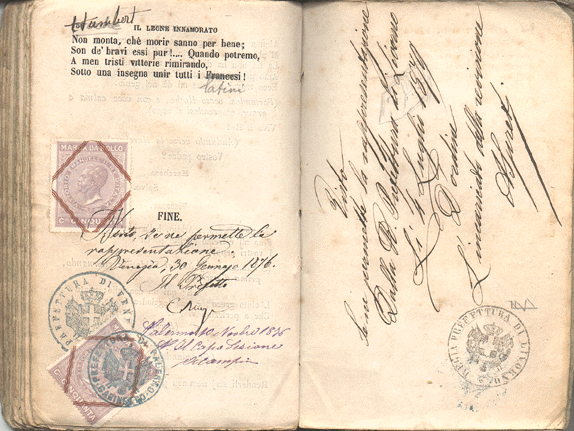 Humbert
IL LEONE INNAMORATO
Non monta, chè morir sanno per bene;
Son de' bravi essi pur!.... Quando potremo,
A men tristi vittorie rimirando,
Sotto una insegna unir tutti i Francesi!
latini
MARCA DA BOLLO
CMI CINQUANTA
FINE.
Visto, e se ne permette la
rappresentazione.
Venezia, 30 Gennajo 1876.
Il Prefetto
PREFETTURA DI VEN
Palermo 10 Novbre 1876
Il Capo Sezione
PREFETTURA DI PALERMO
CINQUANTA
Visto
si permette la rappresentazione
Dalla R. Prefettura di Livorno
Li 4 Luglio 1879
eliminando della
REGIA PREFETTURA DI LIVORNO